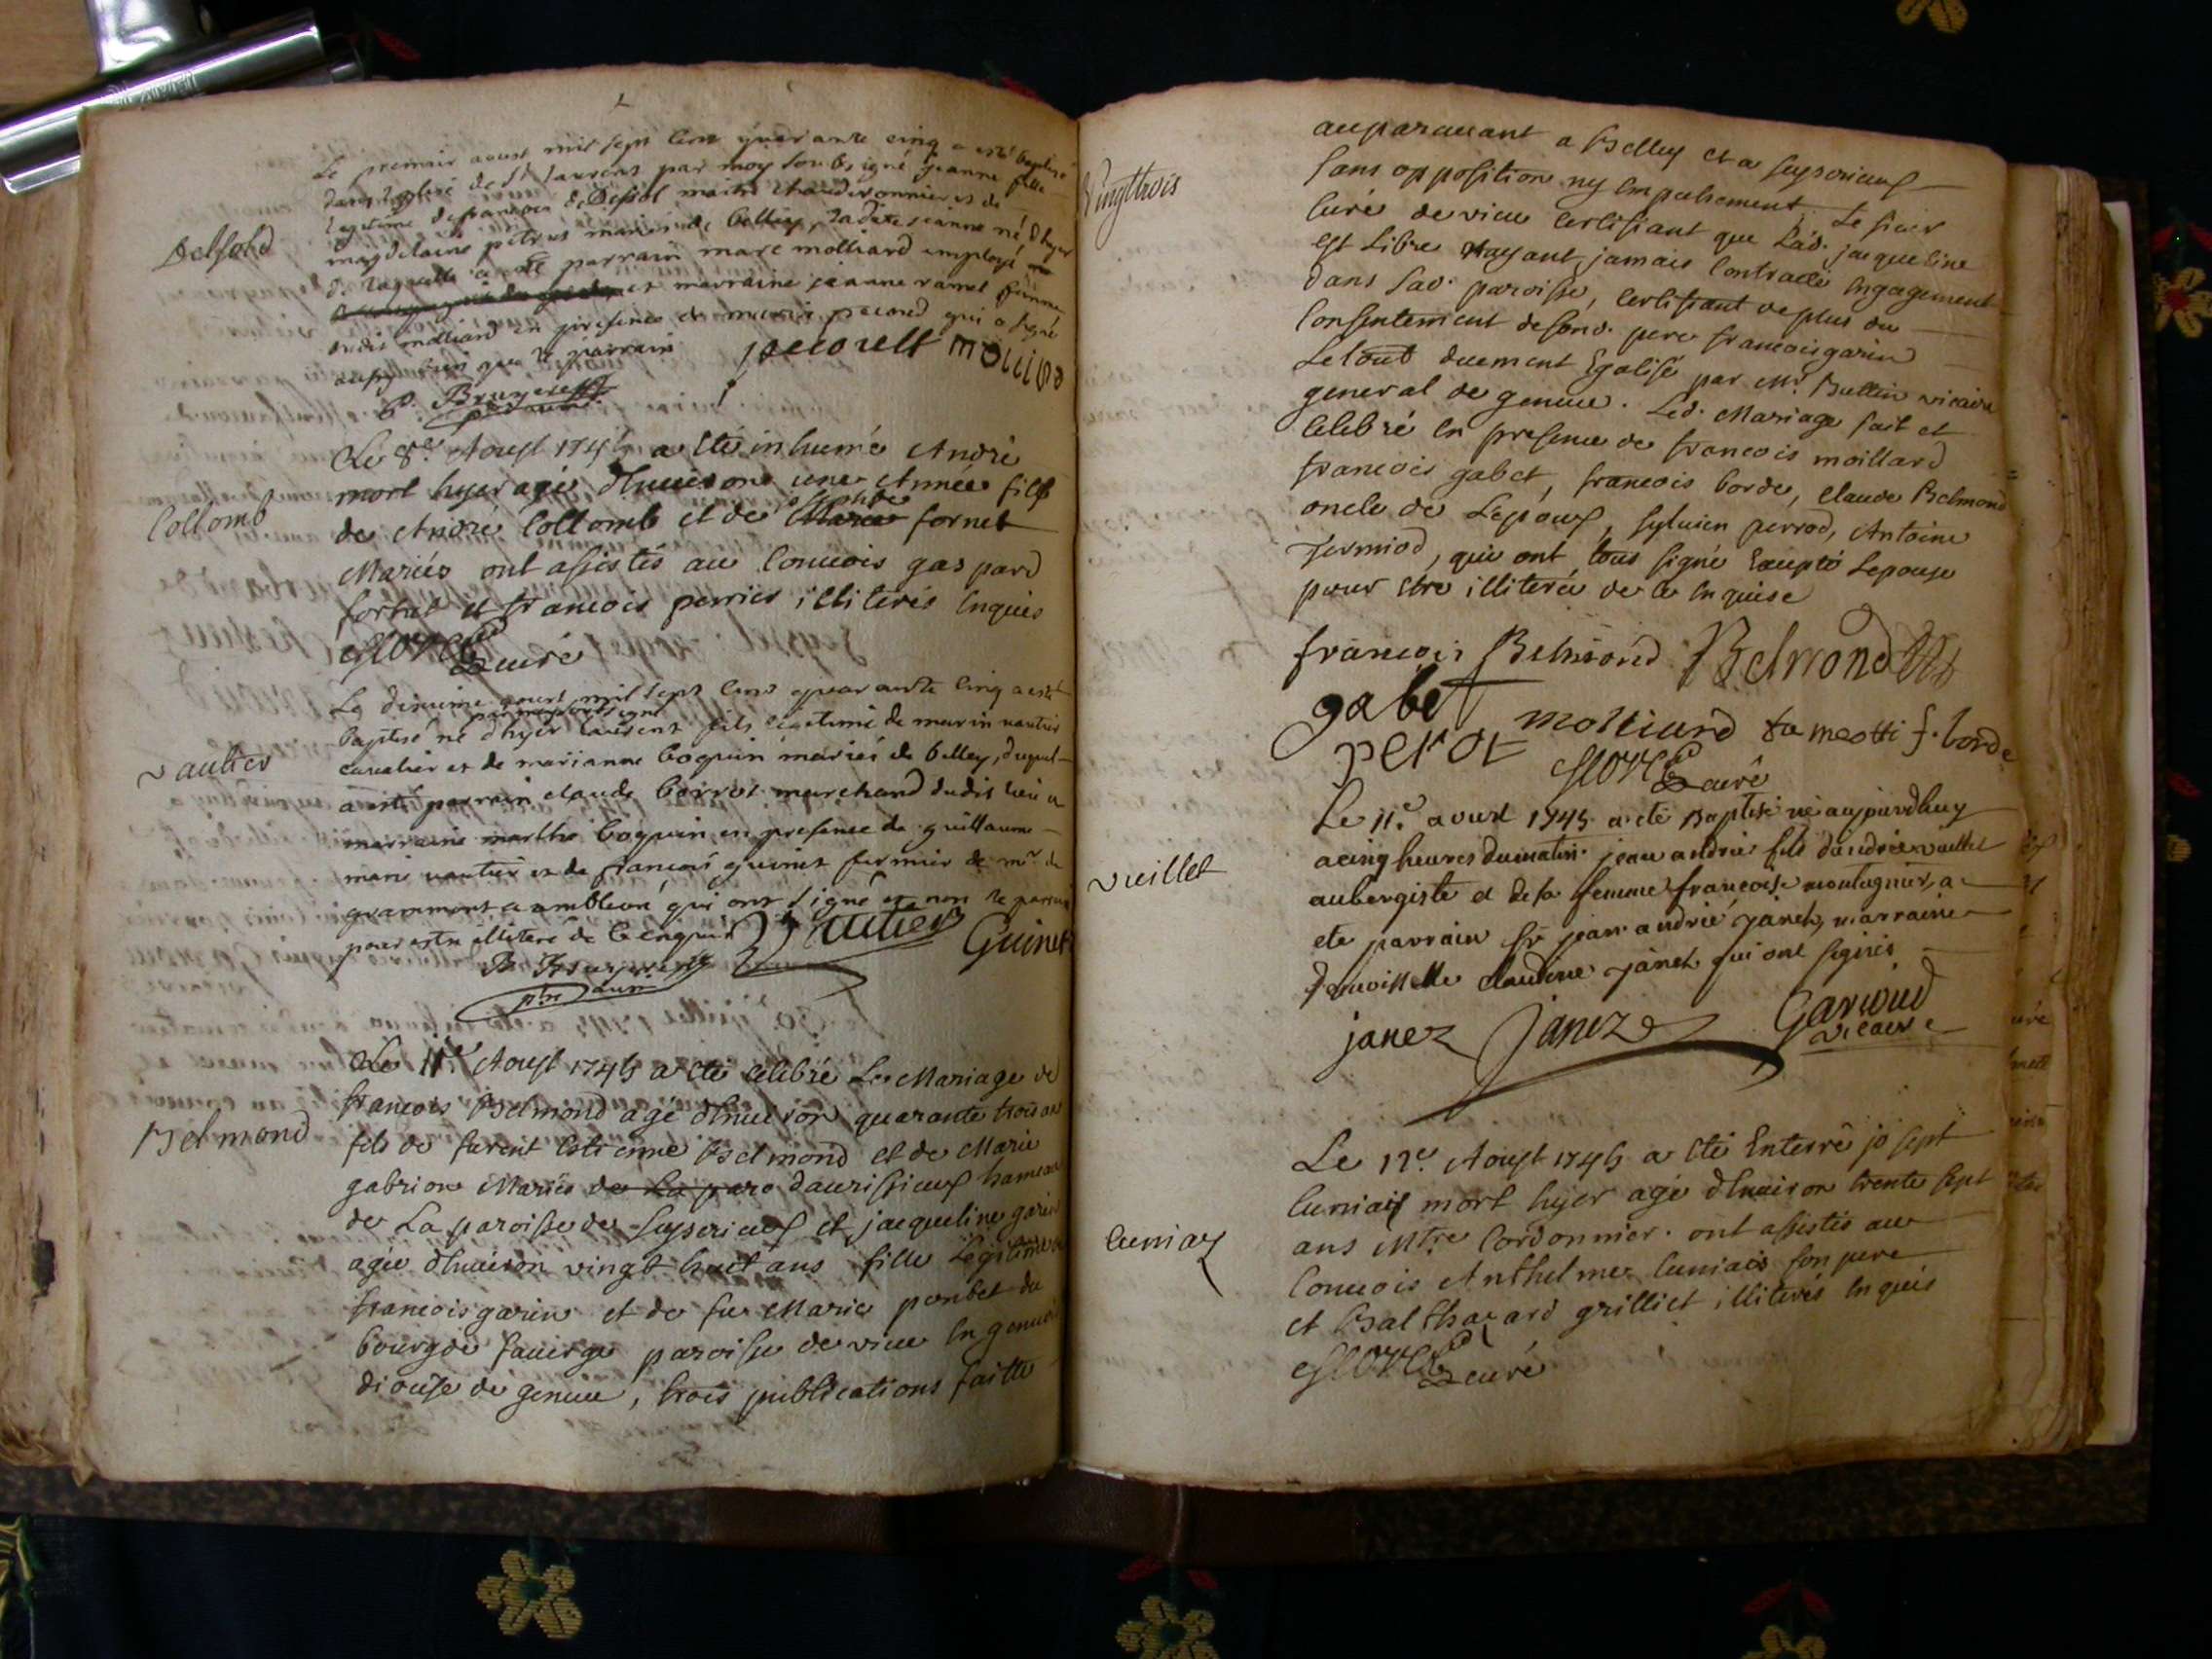 Le premier aoust mil sept cent quarante cinq a esté baptisé
dans l'eglise de St laurens par moy soubsigné jeanne fille
legitime de francois maitre chauderonnier et de
magdelaine mariés de belley, ladite jeanne né d'hyer
Delsold
de laquelle a été parrain marc molliard employé
et marraine jeanne ramel femme
dudit molliard en presence de pacored qui a signé
le parrain
pacorelt
Le 8e. Aoust 1745 a eté inhumé André
mort hyer agé d'huiron une Année fils
Collomb
de André Collomb et de Marie fornet
Mariés ont assistés au Convois gaspard
fornet et francois perrier illiterés Enquis
curé
Le dixième aoust mil sept cens quarante cinq a esté
par moy soubsigné
baptisé né d'hyer laurent fils legitime de marin vautier
vautier
cavalier et de marianne boquin mariés de belley, duquel
a esté parrain claude borrot marchand dudit lieu et
marraine marthe boquin en presence de guillaume
marie vautier et de francois guinet fermier de mr. de
grammont a ambleon qui ont signé et non le parrain
pour estre illiteré de ce enquis Vautier Guinet
Le 11e. Aoust 1745 a eté celebré Le Mariage de
francois Belmond agé d'huiron quarante trois ans
Belmond
fils de furent Estienne Belmond et de Marie
gabrion Mariés de La paro d'aurissieux hameau
de La paroisse de Seyserieux et jacqueline garin
agée d'huiron vingt huit ans fille Legitime de
francois garin et de fue Marie
bourg de faverge paroisse de view En
diocese de geneve, trois publications faitte
auparavant a Belley et a Seyserieux
Vingttrois
sans opposition ny Empechement. Le sieur
curé de view certifiant que Lad. jacqueline
est Libre n'ayant jamais Contracté Engagement
dans Sad. paroisse, certifiant de plus du
Consentement de sond. pere francois garin
Le tout duement Egalisé par Mr. Bullin vicaire
general de geneve. Led. Mariage fait et
celebré En presence de francois moillard
francois gabet, francois borde, claude Belmond
oncle de L'epoux, sylvien perrod, Antoine
Jermiod, qui ont tous signé Excepté L'epouse
pour Etre illiterée de ce Enquise
francois Belmond Belmond
gabet molliard f. borde
perot
curé
Le 11e. aoust 1745 a eté Baptisé né aujourdhuy
a cinq heures du matin jean andrié fils d'andrié vuillet
vuillet
aubergiste et de sa femme francoise montagnier, a
ete parrain sr jean andrié janet, marraine
demoiselle claudine janet qui ont signés
janez Janez Garioud
vicaire
Le 12e. Aoust 1745 a eté Enterré joseph
Cuniat mort hyer agé d'huiron trente sept
Cuniat
ans Mtre Cordonnier. ont assistés au
Convois Anthelme Cuniat son pere
et Balthazard grilliet illiterés Enquis
curé